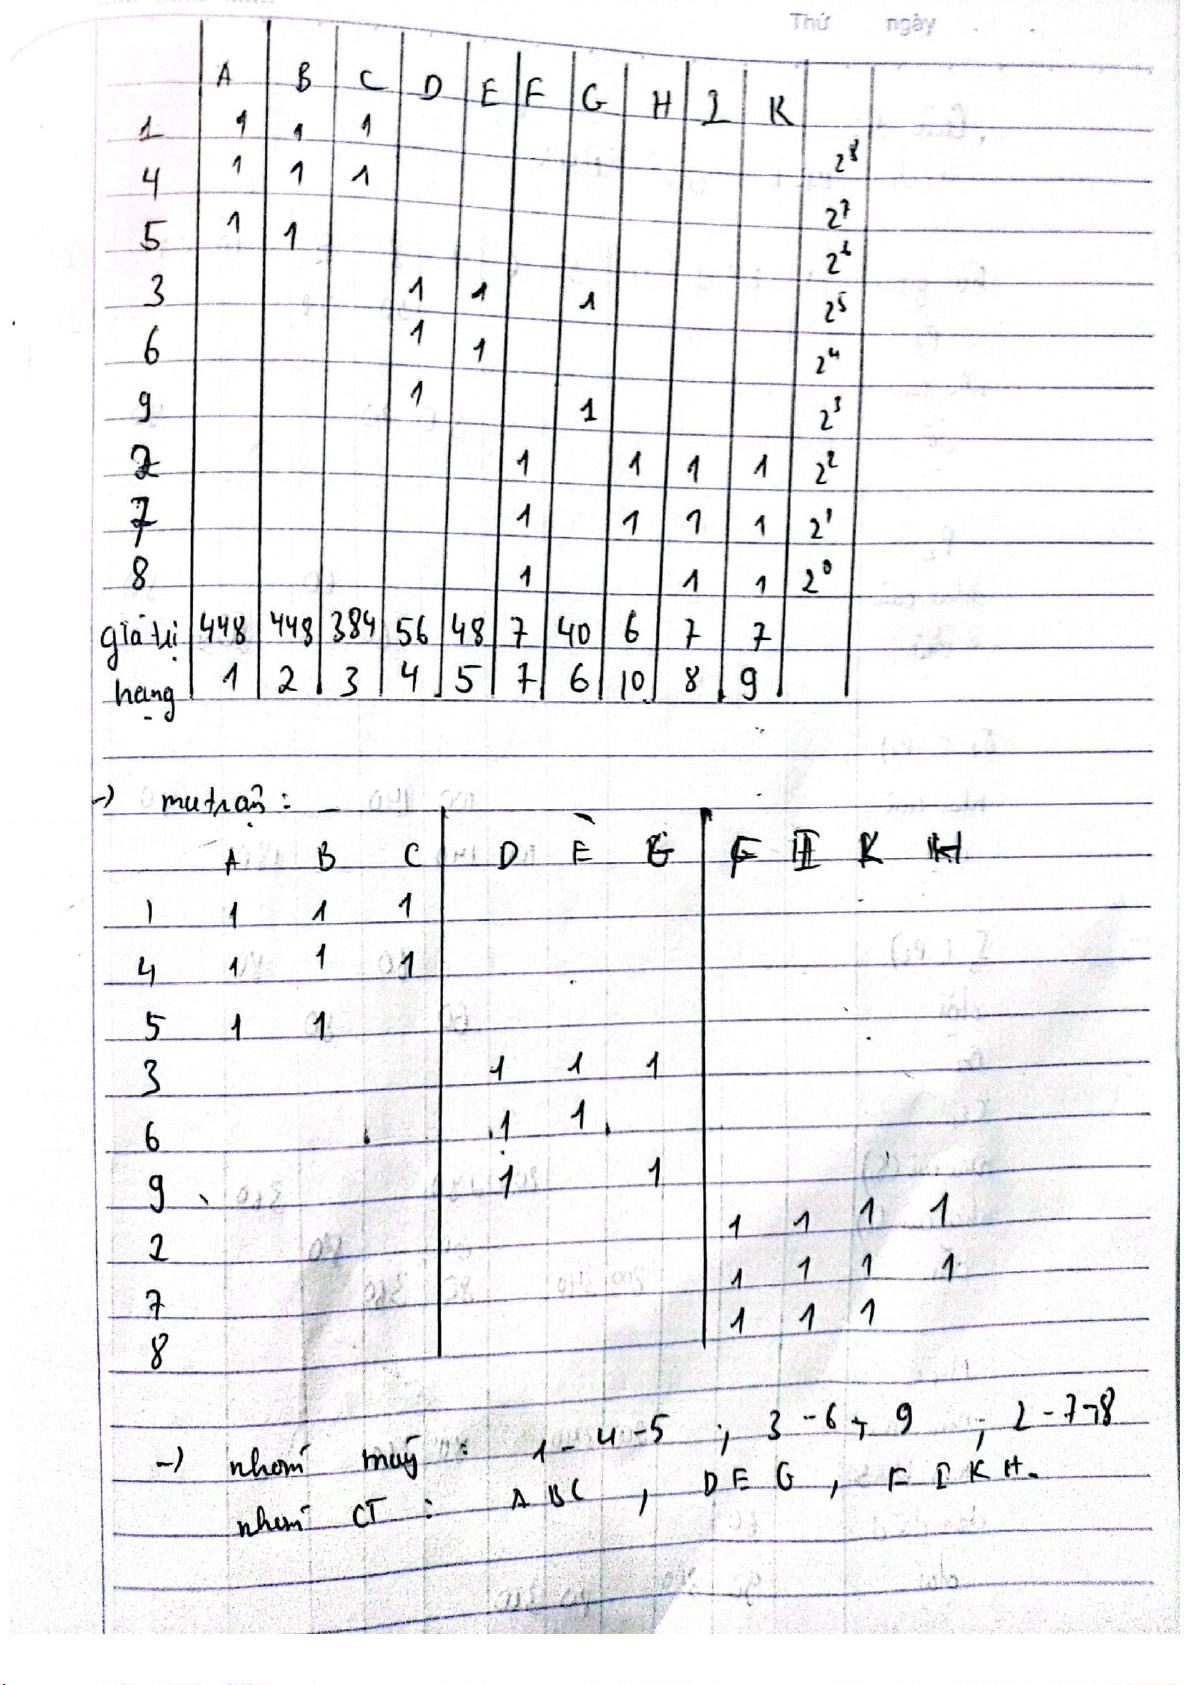 Thứ ngày
A B C D E F G H I K
1 1 1 1 2^8
4 1 1 1 2^7
5 1 1 2^6
3 1 1 1 2^5
6 1 1 2^4
9 1 1 2^3
2 1 1 1 1 2^2
7 1 1 1 1 2^1
8 1 1 1 2^0
giá trị 448 448 384 56 48 7 40 6 7 7
hạng 1 2 3 4 5 7 6 10 8 9
-) ma trận :
A B C D E G F I K H
1 1 1 1
4 1 1 1
5 1 1
3 1 1 1
6 1 1
9 1 1
2 1 1 1 1
7 1 1 1 1
8 1 1 1
-) nhóm máy : 1 - 4 - 5 ; 3 - 6 - 9 ; 2 - 7 - 8
nhóm CT : A B C , D E G , F I K H.